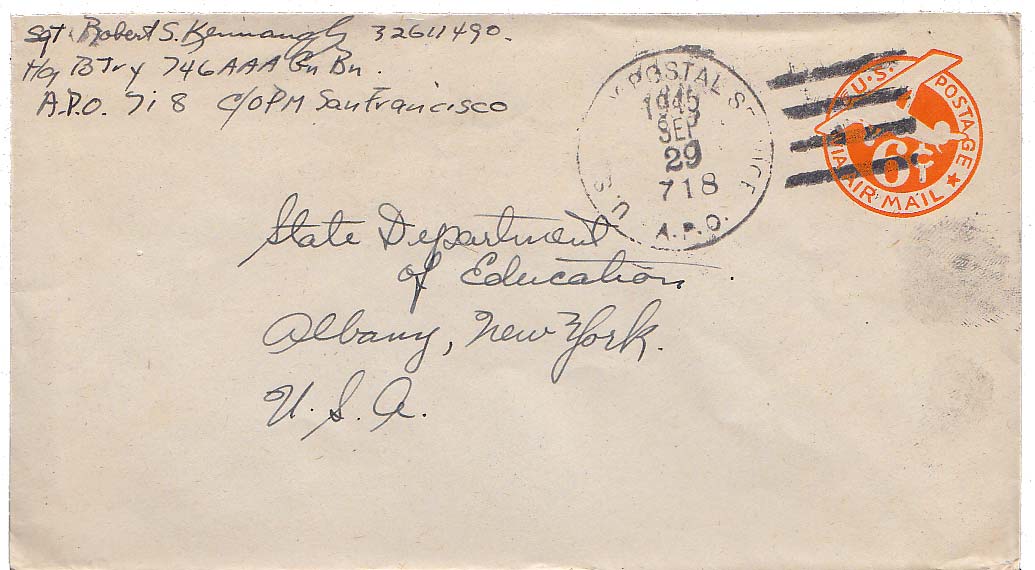 Sgt. Robert S. Kennaugh 32611490.
Hq BTry 746 AAA Gn Bn.
A.P.O. 718 C/O PM San Francisco
POSTAL S
1945
SEP
29
718
U.S.
A.P.O.
U.S. POSTAGE
6¢
VIA AIR MAIL
State Department
of Education
Albany, New York.
U. S. A.